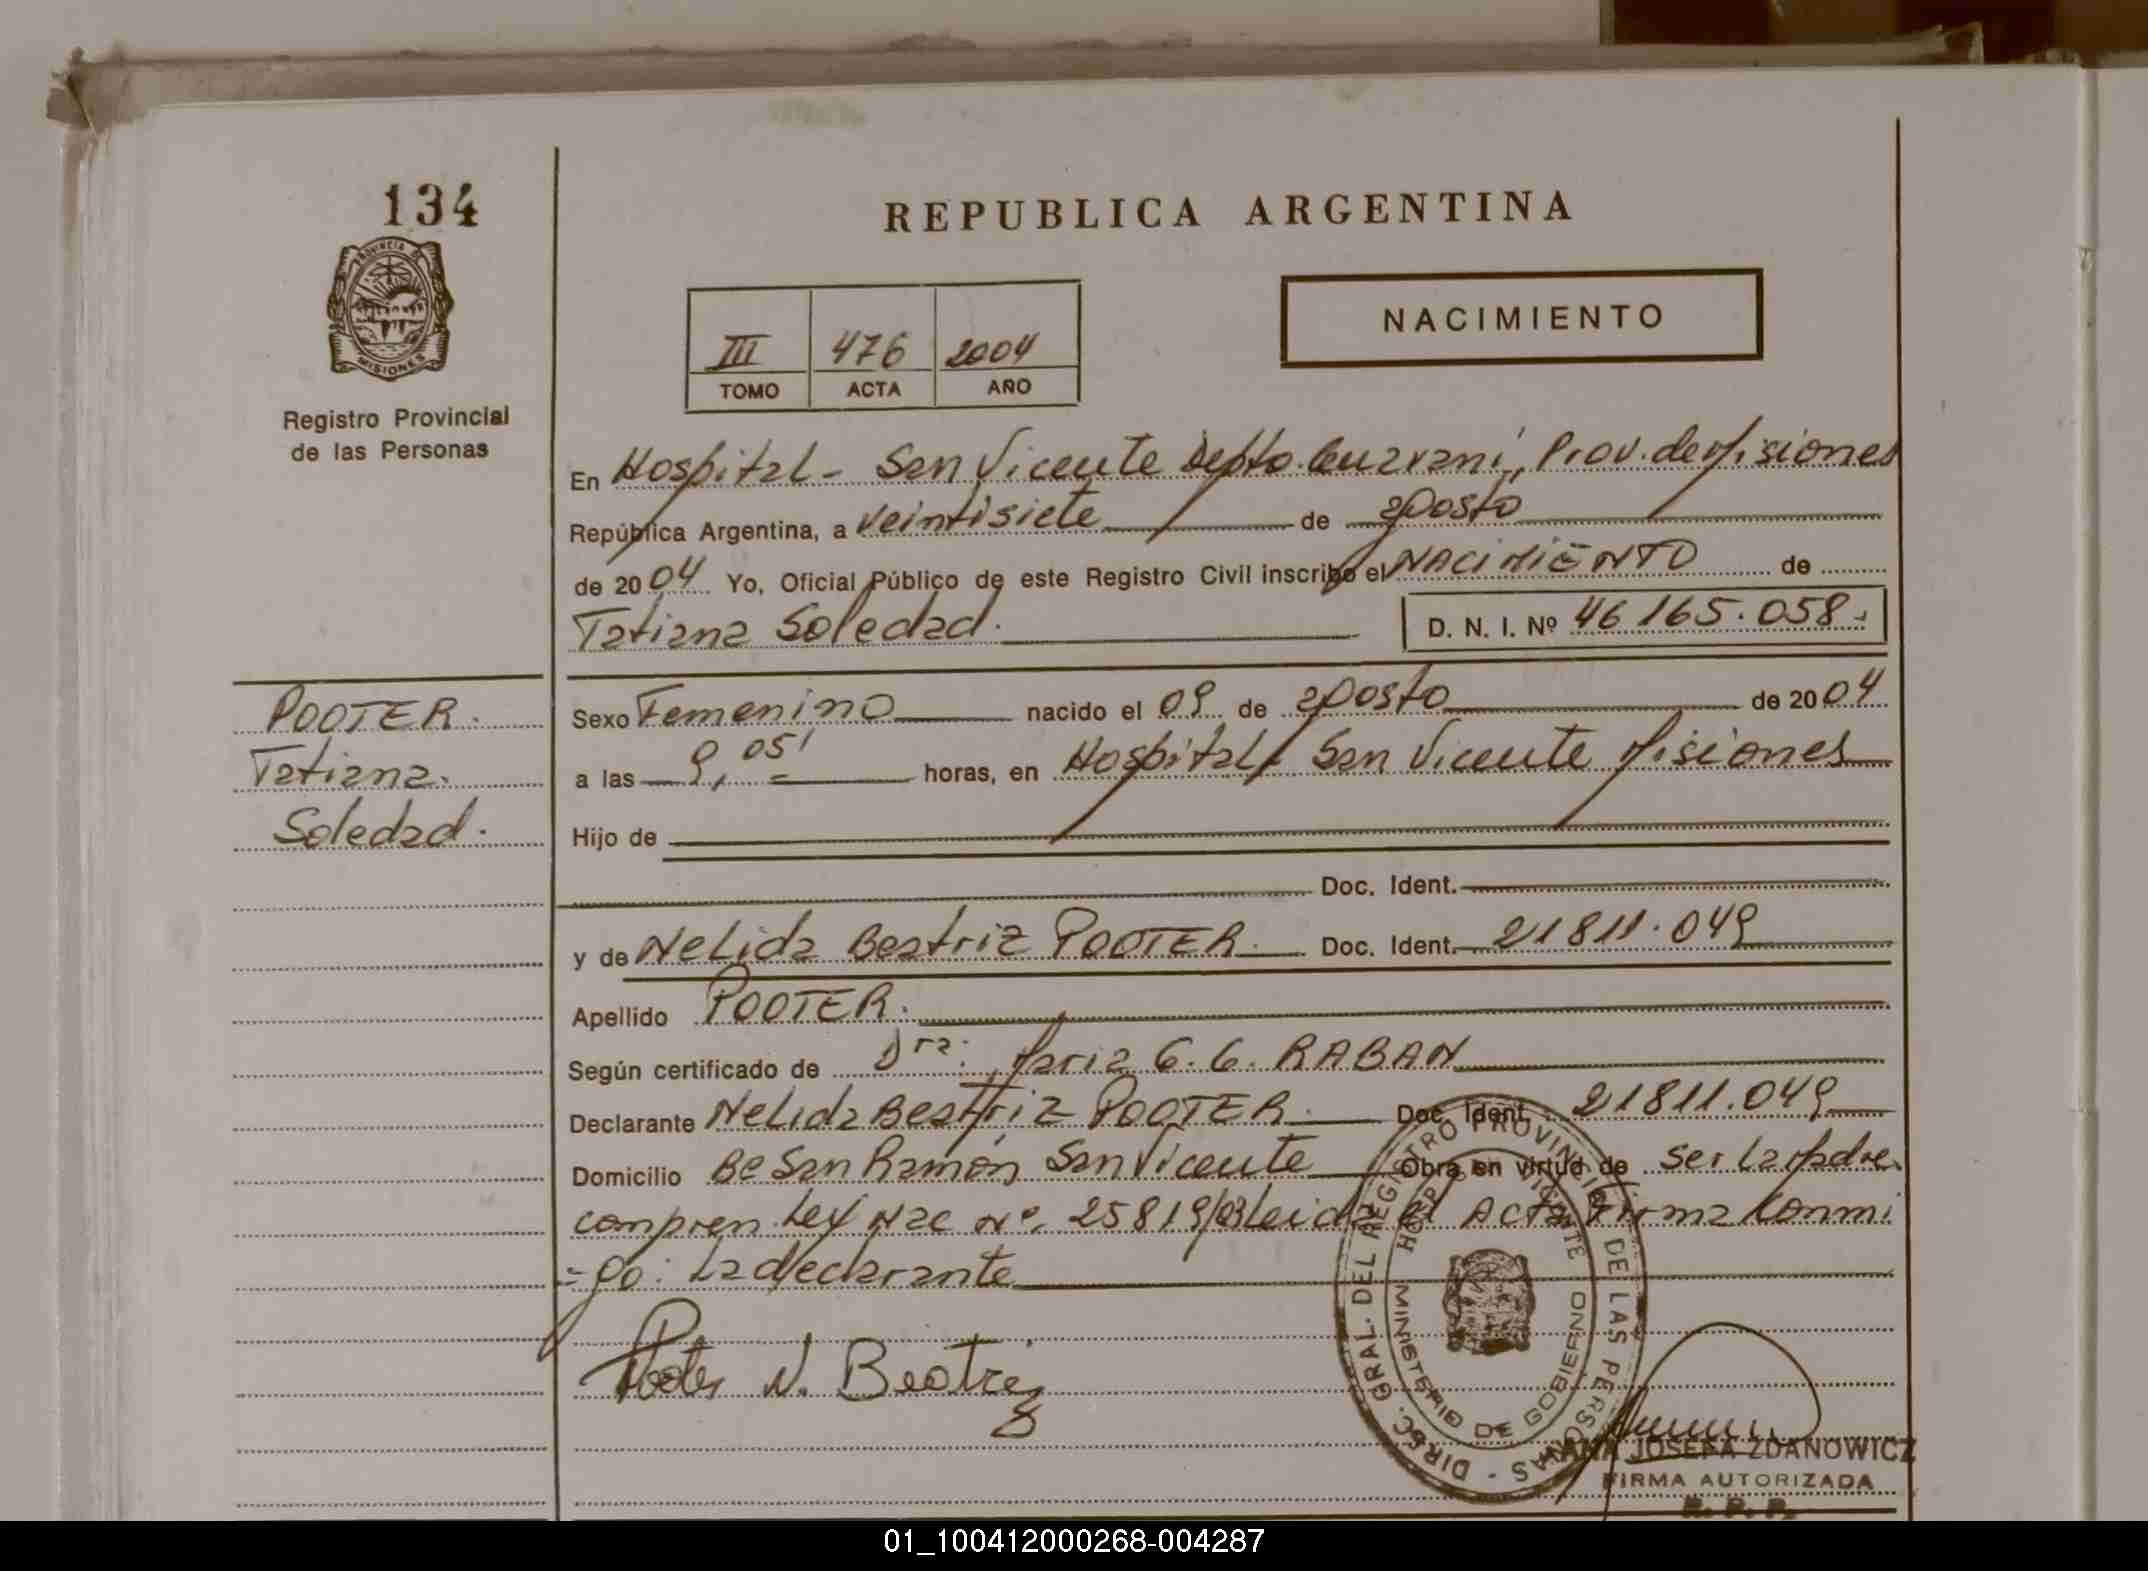 134
PROVINCIA DE
MISIONES
Registro Provincial
de las Personas
REPUBLICA ARGENTINA
III 476 2004
TOMO ACTA AÑO
NACIMIENTO
En Hospital - San Vicente Depto. Guaraní, Prov. de Misiones
República Argentina, a veintisiete de agosto
de 2004 Yo, Oficial Público de este Registro Civil inscribo el NACIMIENTO de
Tatiana Soledad. D. N. I. Nº 46165.058.
POOTER.
Tatiana.
Soledad.
Sexo Femenino nacido el 09 de agosto de 2004
a las 9,05' horas, en Hospital San Vicente Misiones
Hijo de
Doc. Ident.
y de Nelida Beatriz POOTER. Doc. Ident. 21811.049
Apellido POOTER.
Según certificado de Dra: Maria G. G. RABAN
Declarante Nelida Beatriz POOTER. Doc. Ident. 21811.049
Domicilio Bº San Ramón, San Vicente Obra en virtud de ser la Madre
compren Ley Nac Nº 25819/03 leida el Acta Firma Conmi
=go: La declarante
Pooter N. Beatriz
DIREC. GRAL. DEL REGISTRO PROVINCIAL DE LAS PERSONAS -
HOSP SAN VICENTE
MINISTERIO DE GOBIERNO
ANA JOSEFA ZDANOWICZ
FIRMA AUTORIZADA
R. P. P.
01_100412000268-004287